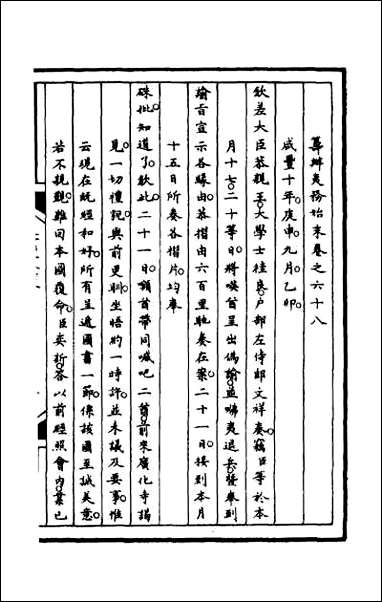 籌辦夷務始末卷之六十八
咸豐十年庚申九月乙卯
欽差大臣恭親王大學士桂良戶部左侍郎文祥奏竊臣等於本
月十七二十等日將嘆首呈出偽諭並咈夷退兵隨奏到
諭旨宣示各緣由恭摺由六百里馳奏在案二十一日接到本月
十五日所奏各摺片均奉
硃批知道了欽此二十一日額首帶同喊吧二酋前來廣化寺謁
見一切禮貌與前更馴坐悟約一時許並未議及要事惟
云現在既經和好所有呈遞國書一節係該國至誠美意
若不親覲難回本國覆命臣奕訢答以前經照會內業已